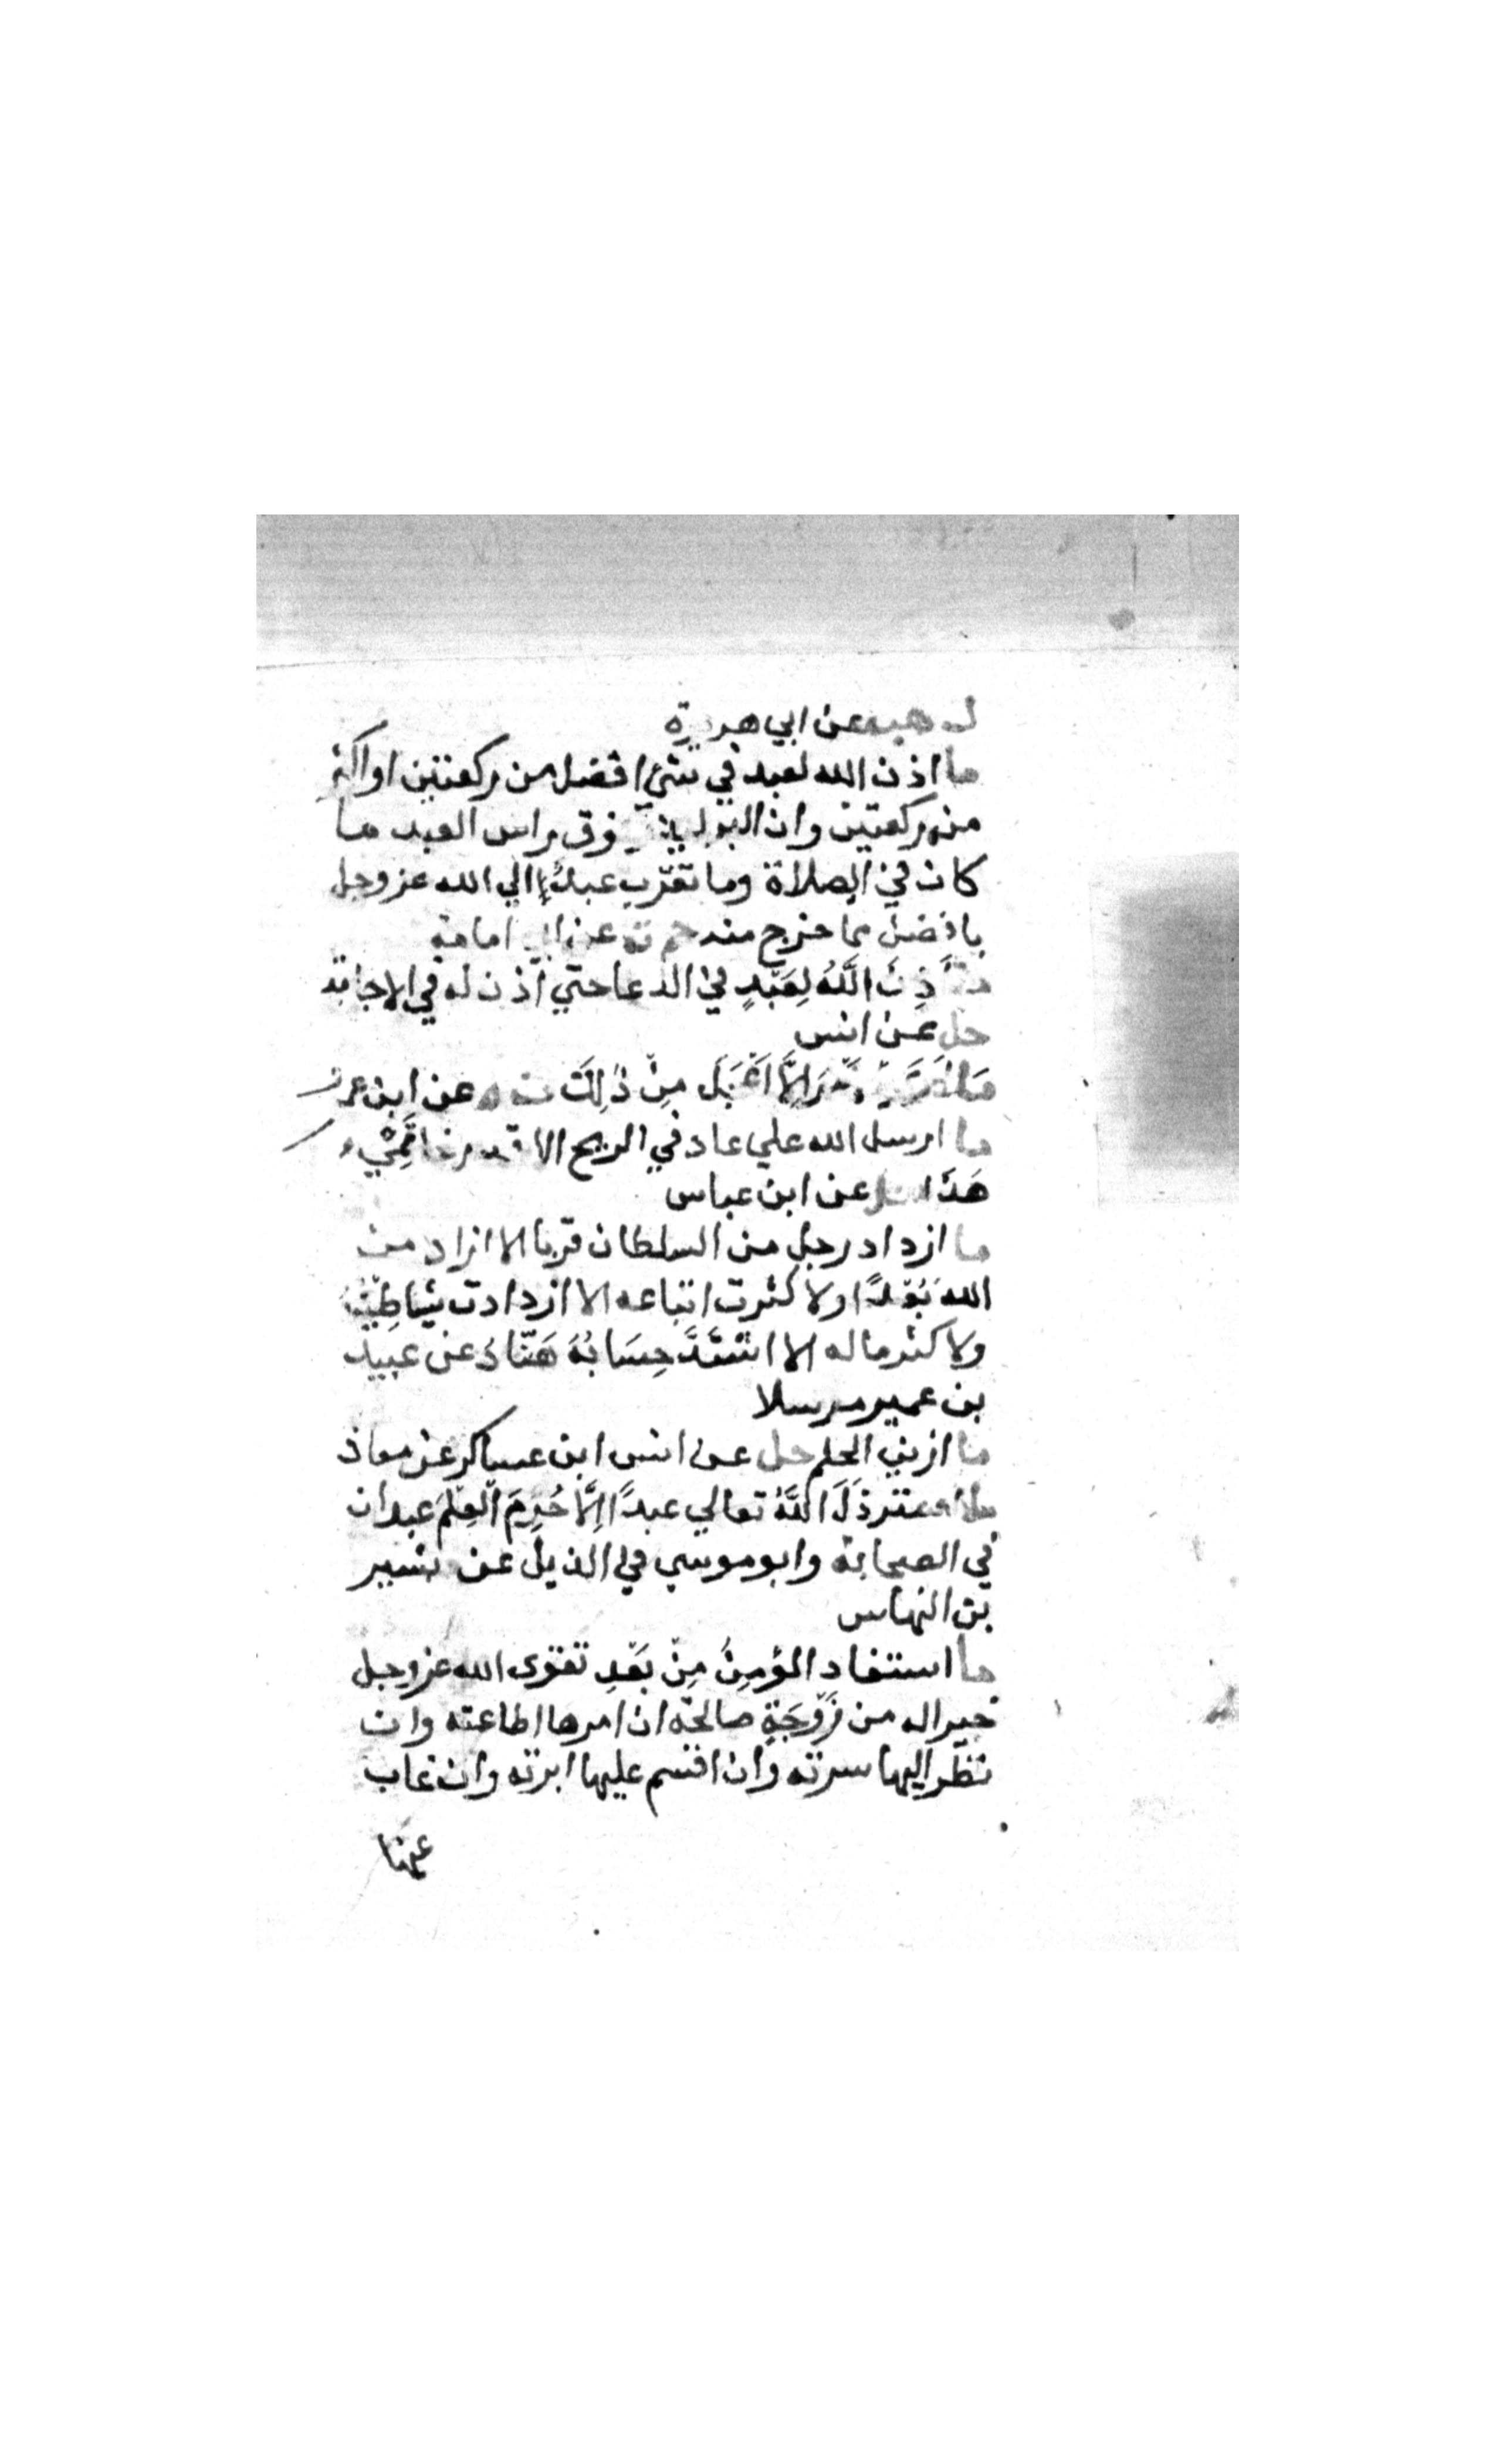 ك هب عن ابي هريرة
ما اذن الله لعبد في شيء افضل من ركعتين او اكثر
من ركعتين وان البر فوق راس العبد ما
كان في الصلاة وما تقرب عبدٌ الي الله عز وجل
بافضل مما خرج منه حم ت عن ابي امامة
ما أذِنَ اللَّهُ لِعَبْدٍ في الدعا حتي أذن له في الاجابة
حل عن انس
الامْرَ إلَّا أعْجَلَ مِنْ ذٰلِكَ ت ه عن ابن عمر
ما ارسل الله علي عاد في الريح الا قدر خاتمي
هَذَا حل عن ابن عباس
ما ازداد رجل من السلطان قربا الا ازاد من
الله بُعْدًا ولا كثرت اتباعه الا ازدادت شياطينُهُ
ولا كثر ماله الا اشتَدَّ حِسَابُهُ هَنَّاد عن عبيد
بن عمير مرسلا
ما ازين الحلم حل عن انس ابن عساكر عن معاذ
ما استرذَلَ اللَّهُ تعالي عبدًا إلَّا حُرِمَ العِلمَ عبدان
في الصحابة وابو موسي في الذيل عن بشير
بن النهاس
ما استفاد المؤمِنُ مِنْ بَعْدِ تقوى الله عز وجل
خيرا له من زَوْجَةٍ صالحة ان امرها اطاعته وان
نظر اليها سرته وان اقسم عليها ابرته وان غاب
عنها